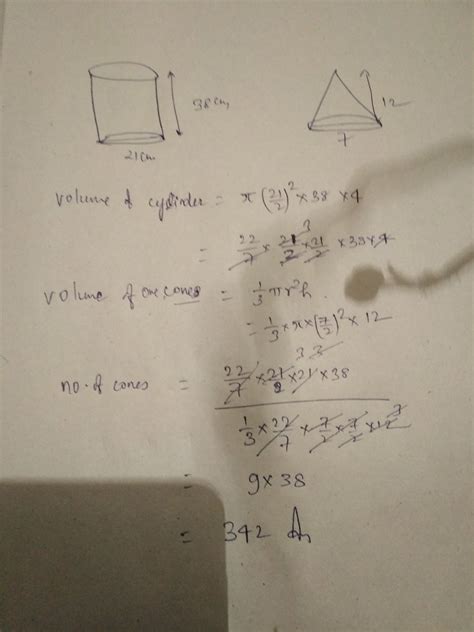 38cm 12
21cm 7
Volume of cylinder = π (21/2)² × 38 × 4
= 22/7 × 21/2 × 21/2 × 38 × 4
3
volume of one cones = 1/3 πr²h.
= 1/3 × π × (7/2)² × 12
3 3
no. of cones = 22/7 × 21/2 × 21 × 38
1/3 × 22/7 × 7/2 × 7/2 × 12
= 9 × 38
= 342